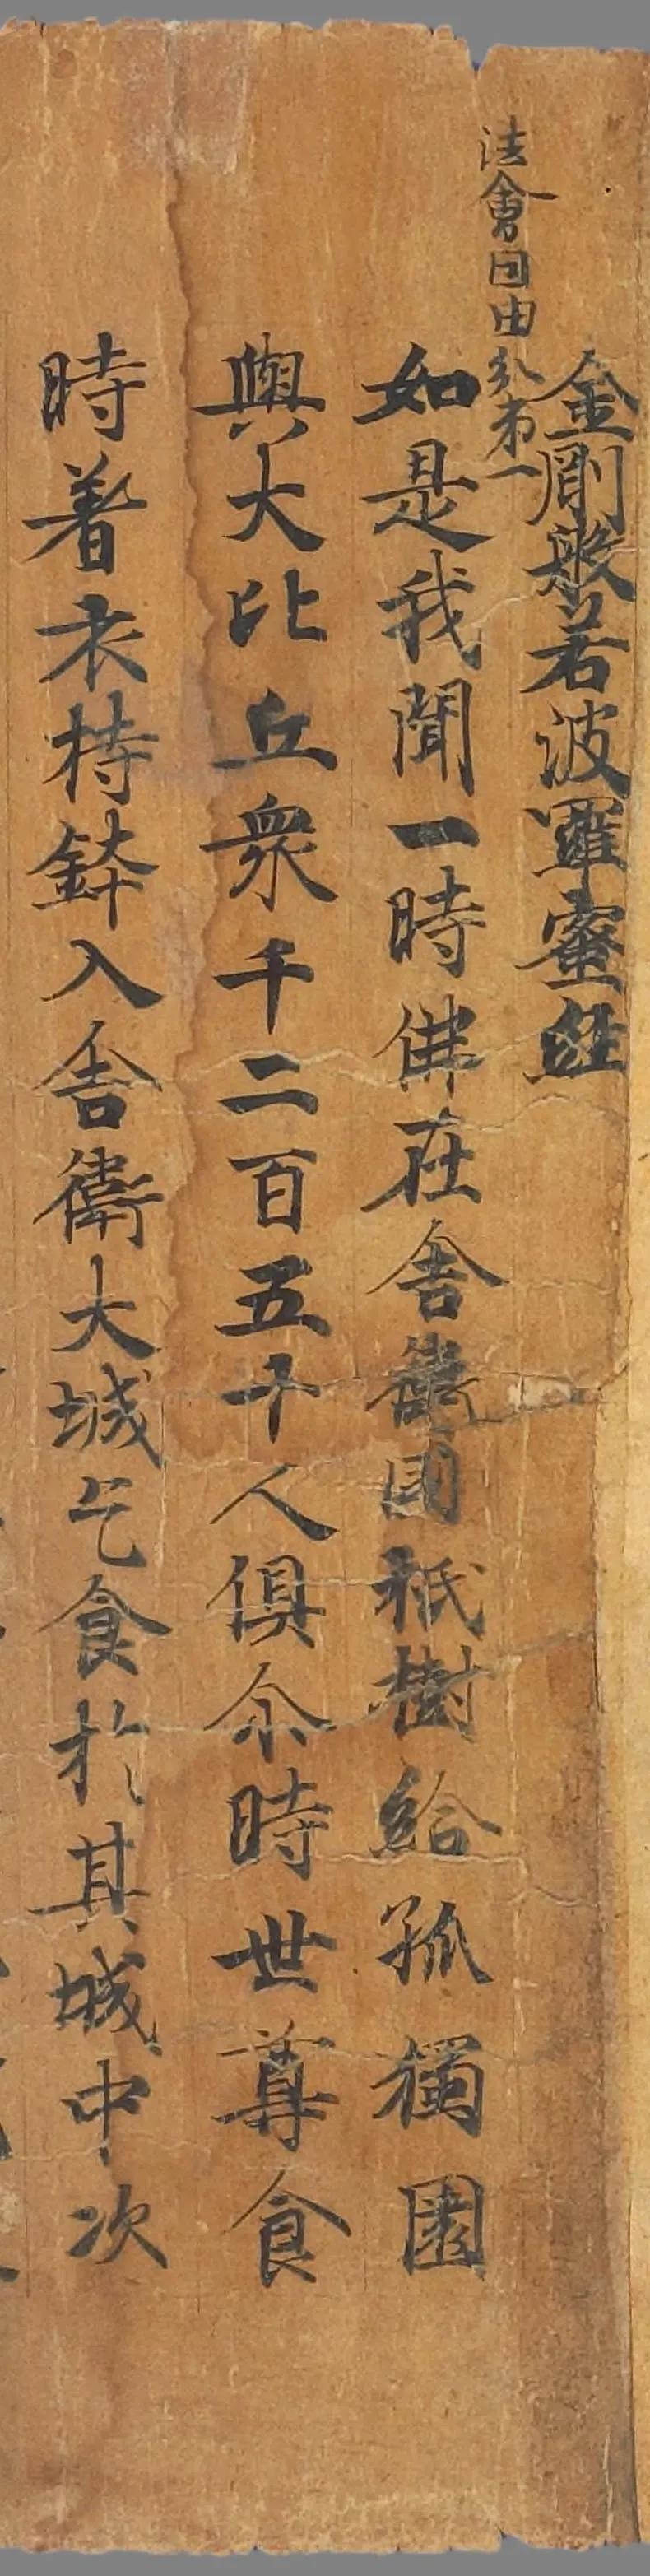 金剛般若波羅蜜經
法會因由分第一
如是我聞一時佛在舍衛國祇樹給孤獨園
與大比丘衆千二百五十人俱尒時世尊食
時著衣持鉢入舍衛大城乞食於其城中次